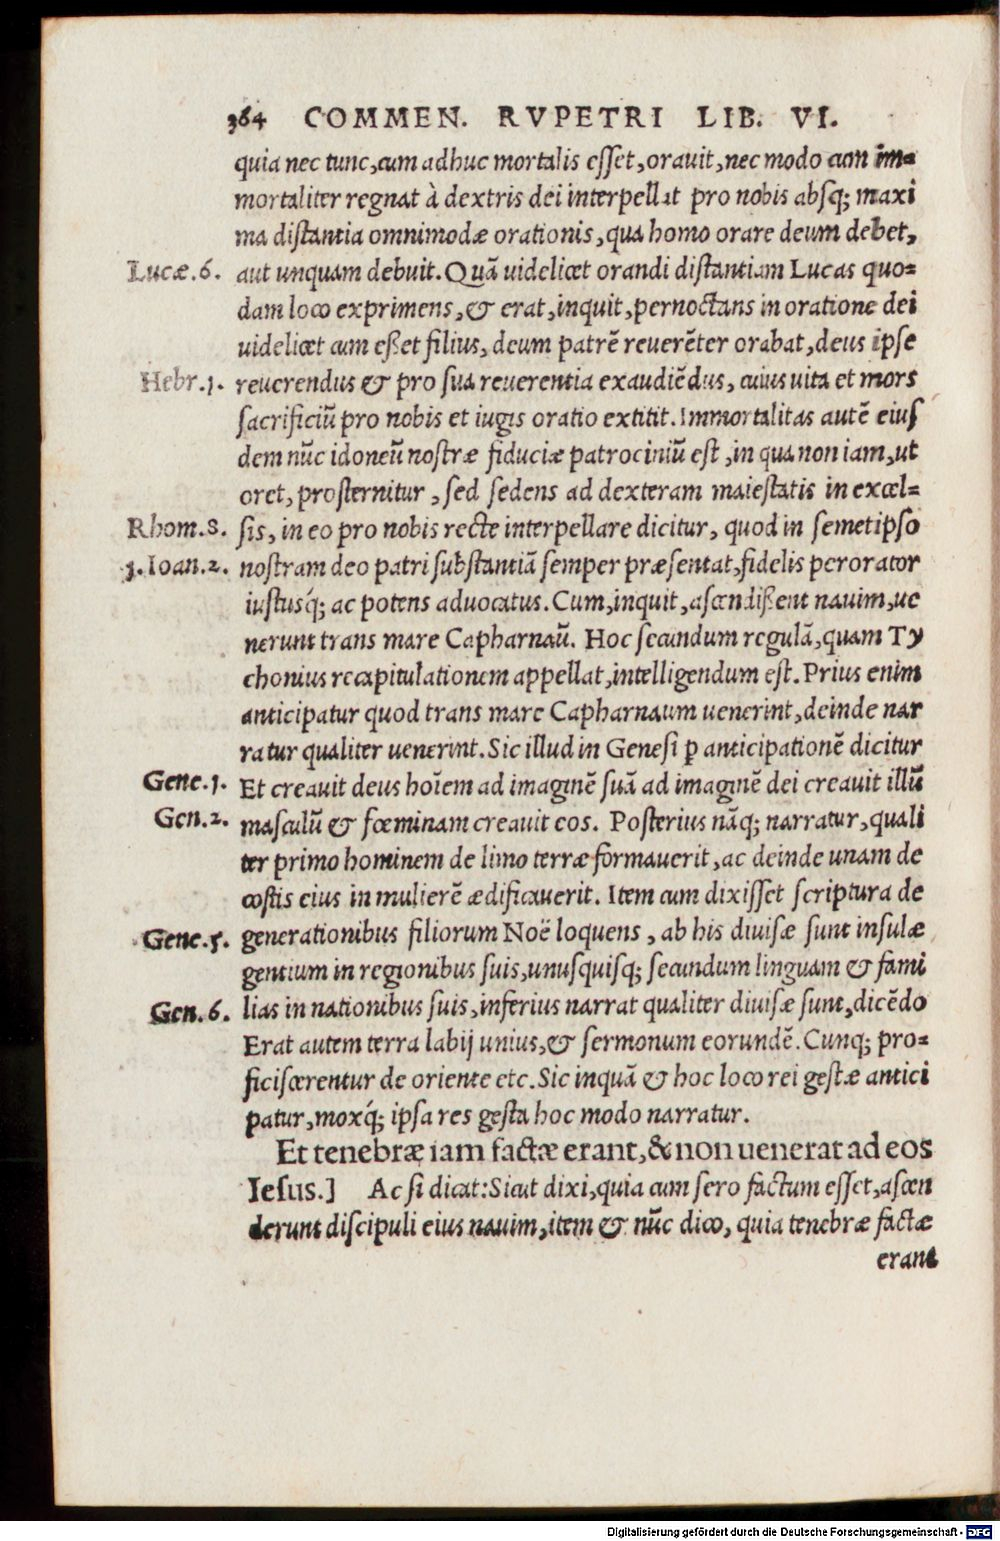 364 COMMEN. RVPETRI LIB. VI.
quia nec tunc, cum adhuc mortalis esset, orauit, nec modo cum im=
mortaliter regnat à dextris dei interpellat pro nobis absq; maxi
ma distantia omnimodæ orationis, qua homo orare deum debet,
Lucæ.6. aut unquam debuit. Quā uidelicet orandi distantiam Lucas quo=
dam loco exprimens, & erat, inquit, pernoctans in oratione dei
uidelicet cum eßet filius, deum patrē reuerēter orabat, deus ipse
Hebr.1. reuerendus & pro sua reuerentia exaudiēdus, cuius uita et mors
sacrificiū pro nobis et iugis oratio extitit. Immortalitas autē eius
dem nūc idoneū nostræ fiduciæ patrociniū est, in qua non iam, ut
oret, prosternitur, sed sedens ad dexteram maiestatis in excel=
Rhom.8. sis, in eo pro nobis recte interpellare dicitur, quod in semetipso
1.Ioan.2. nostram deo patri substantiā semper præsentat, fidelis perorator
iustusq́; ac potens aduocatus. Cum, inquit, ascendißent nauim, ue
nerunt trans mare Capharnaū. Hoc secundum regulā, quam Ty
chonius recapitulationem appellat, intelligendum est. Prius enim
anticipatur quod trans mare Capharnaum uenerint, deinde nar
ratur qualiter uenerint. Sic illud in Genesi ꝑ anticipationē dicitur
Gene.1. Et creauit deus hoīem ad imaginē suā ad imaginē dei creauit illū
Gen.2. masculū & fœminam creauit eos. Posterius nāq; narratur, quali
ter primo hominem de limo terræ formauerit, ac deinde unam de
costis eius in mulierē ædificauerit. Item cum dixisset scriptura de
Gene.5. generationibus filiorum Noë loquens, ab his diuisæ sunt insulæ
gentium in regionibus suis, unusquisq; secundum linguam & fami
Gen.6. lias in nationibus suis, inferius narrat qualiter diuisæ sunt, dicēdo
Erat autem terra labij unius, & sermonum eorundē. Cunq; pro=
ficiscerentur de oriente etc. Sic inquā & hoc loco rei gestæ antici
patur, moxq́; ipsa res gesta hoc modo narratur.
Et tenebræ iam factæ erant, & non uenerat ad eos
Iesus.] Ac si dicat: Sicut dixi, quia cum sero factum esset, ascen
derunt discipuli eius nauim, item & nūc dico, quia tenebræ factæ
erant
Digitalisierung gefördert durch die Deutsche Forschungsgemeinschaft - DFG